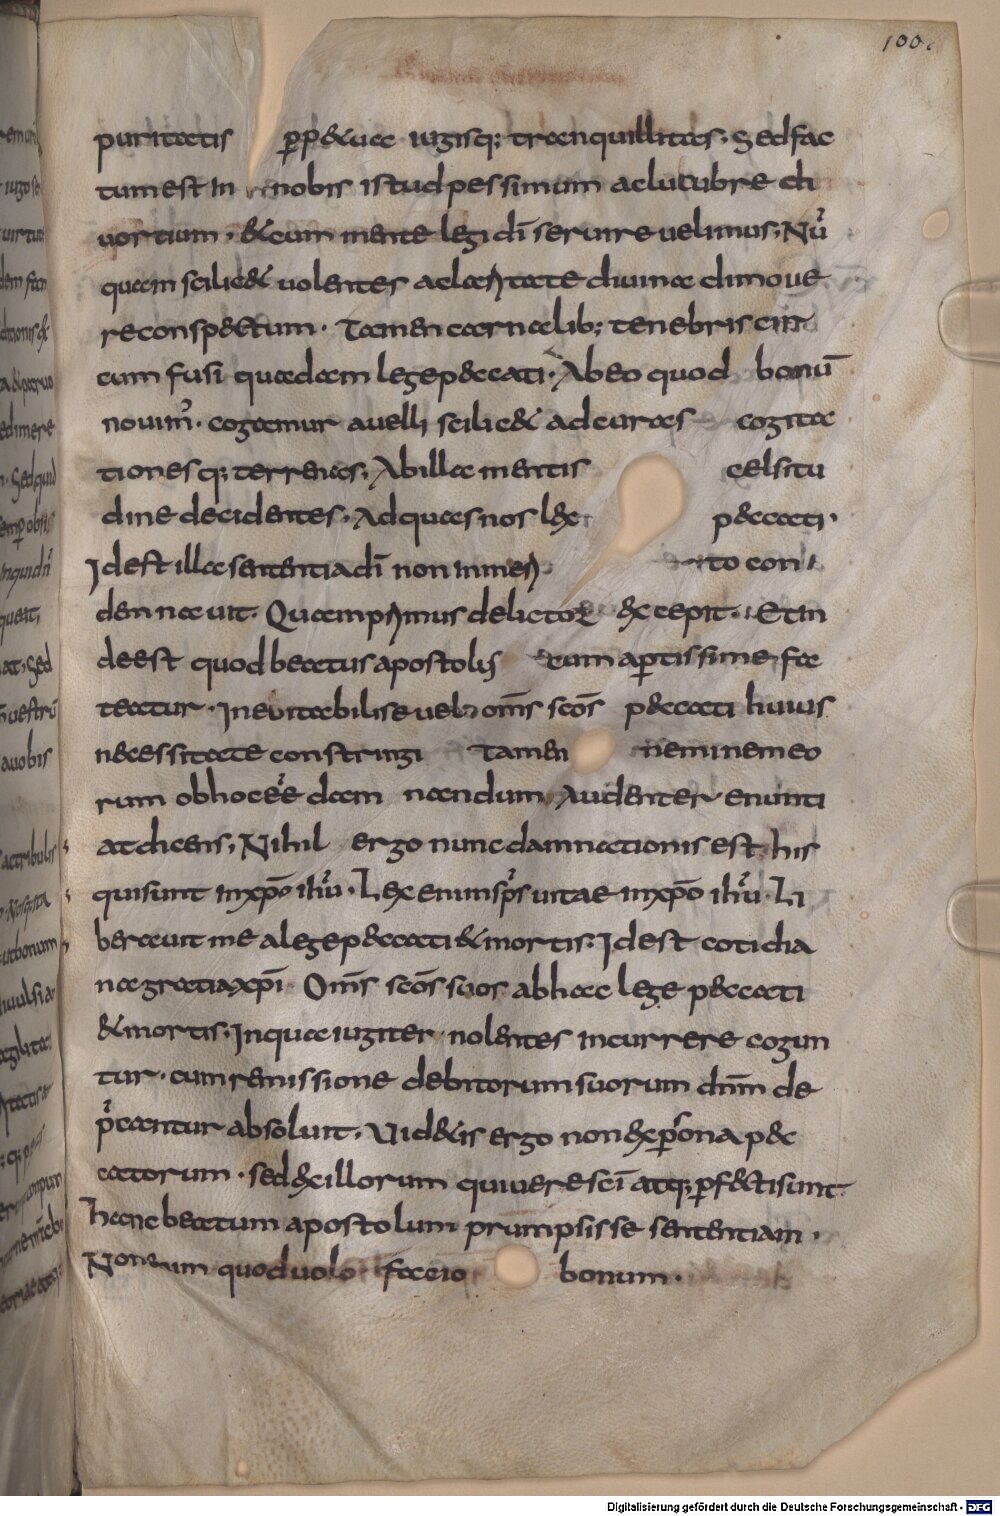 100.
puritatis p̲p&uae iugisq; tranquillitas. Sed fac
tum est in nobis istud pessimum ac lucubre di
uortium. &cum mente legi dī seruire uelimus; Nū
quam scilic& uolentes ac laxtate diuinae dimoue
re consp&tum. Tamen carnalib; tenebris cir
cumfusi quadam lege p&cati. Ab eo quod bonū
nouim᾿. cogamur auelli scilic& ad curas cogita
tionesq; terrenas; Ab illa mentis celsitu
dine decidentes. Ad quas nos lex p&cati.
Idest illa sententia dī non inmer to con
demnauit. Quam primus delictor excepit. Et in
de est quod beatus apostolus cum ap̲tissime fa
teatur. Ineuitabilise uel om̄s sc̄os p&cati huius
n&cessitate constringi tamen neminem eo
rum ob hoc eē dam nandum Audenter enunti
at dicens; Nihil ergo nunc damnationis est his
qui sunt inxp̄o ih̄u. Lex enim sp̄s uitae inxp̄o ih̄u. Li
berauit me a lege p&cati & mortis; Idest cotidia
na gratia xp̄i. Om̄s sc̄os suos ab hac lege p&cati
& mortis; In qua iugiter nolentes incurrere cogun
tur. cum remissione debitorum suorum dn̄m de
p̄cantur absoluit. Uid&is ergo non ex p̲sona p&c
catorum. sed ex illorum qui uere sc̄i atq; p̲f&ti sunt
hanc beatum apostolum prumpsisse sententiam.
Non enim quod uolo facio bonum.
Digitalisierung gefördert durch die Deutsche Forschungsgemeinschaft - DFG